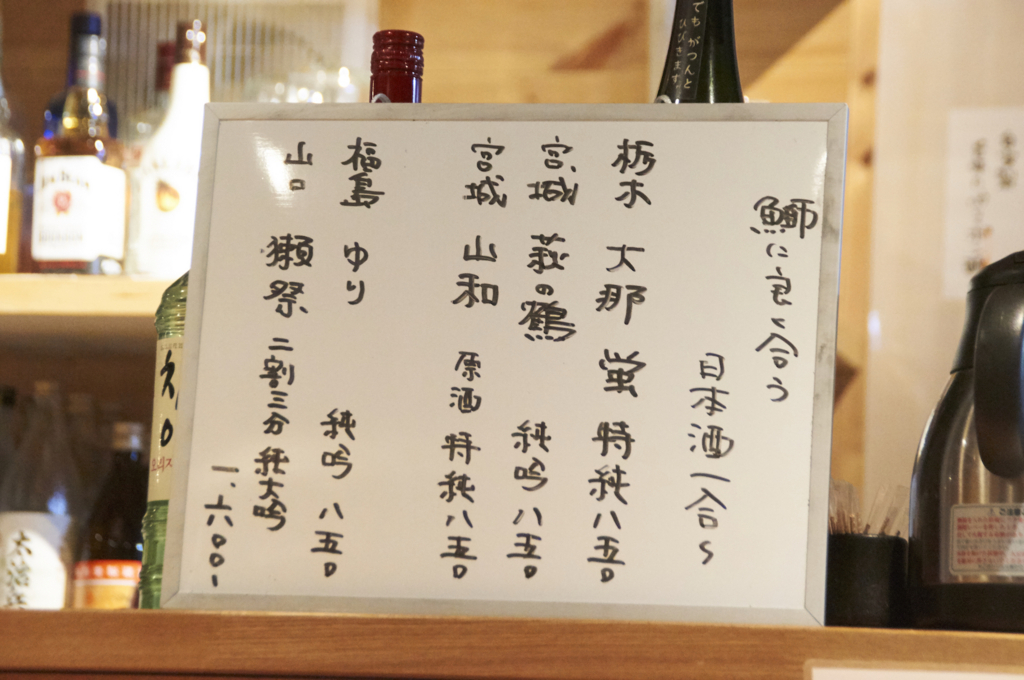 鰤に良く合う
日本酒一合〜
栃木 大那 蛍 特純 八五〇
宮城 萩の鶴 純吟 八五〇
宮城 山和 原酒 特純 八五〇
福島 ゆり 純吟 八五〇
山口 獺祭 二割三分 純大吟
一、六〇〇、
でもがつんと
ひびきます。